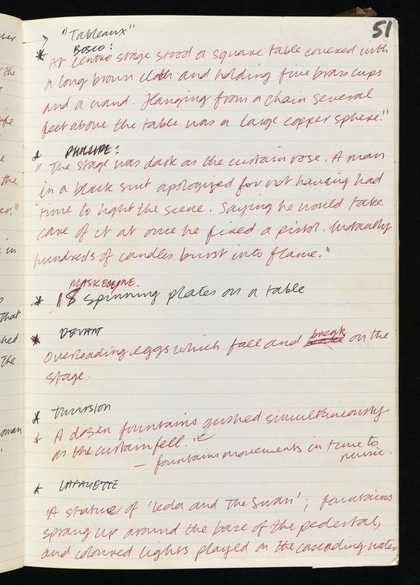 51
"Tableaux"
* Bosco:
"At centre stage stood a square table covered with
a long brown cloth and holding five brass cups
and a wand. Hanging from a chain several
feet above the table was a large copper sphere."
* PHILLIPE:
"The stage was dark as the curtain rose. A man
in a black suit apologised for not having had
time to light the scene. Saying he would take
care of it at once he fired a pistol. Instantly
hundreds of candles burst into flame."
MASKELYNE.
* 18 spinning plates on a table
* DEVANT
Overloading eggs which fall and break on the
stage.
* Thurston
* A dozen fountains gushed simultaneously
as the curtain fell."
— fountains movements in time to
music.
* LAFAYETTE
'A statue of 'Leda and The Swan'; fountains
sprang up around the base of the pedestal,
and coloured lights played on the cascading water